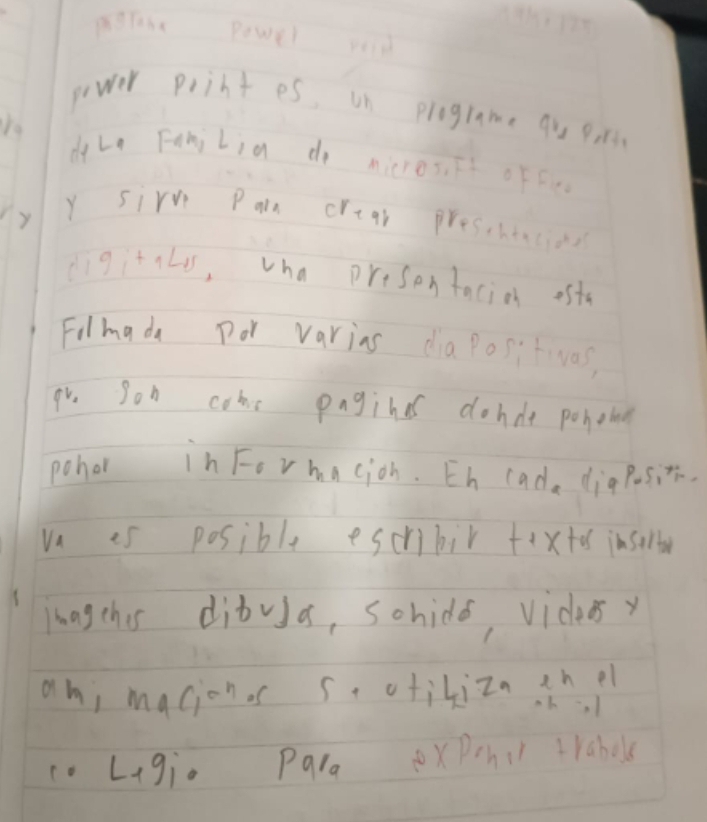 power point es un programa que
de La FamiLia de microsoft office
y sirve Para crear presentaciones
digitaLes, una presentacion esta
Formada por varias diapositivas,
que son como paginas donde
poner inFormacion. En cada diapositi-
va es posible escribir textos insertar
imagenes dibujos, sonidos, videos y
animaciones se utiLiza en el
en el
coLegio Para exponer trabajos